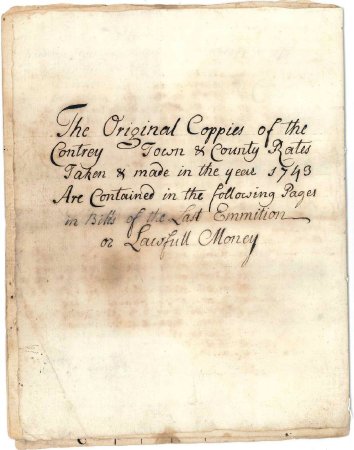 The Original Coppies of the
Contrey Town & County Rates
Taken & made in the year 1743
Are Contained in the following Pages
in Bills of the Last Emmition
or Lawfull Money